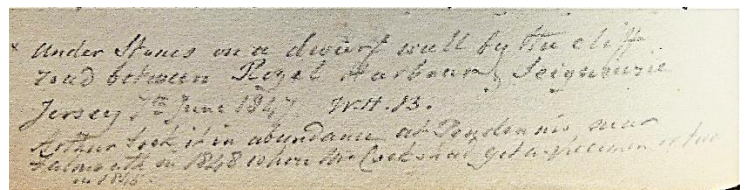 x Under Stones on a dwarf wall by the cliff
road between Rozel Harbour & Seigneurie
Jersey 7th June 1847. W.H.B.
Arthur took it in abundance at Pendennis near
Falmouth in 1848 where Mr Cocks had got a specimen or two
in 1846.